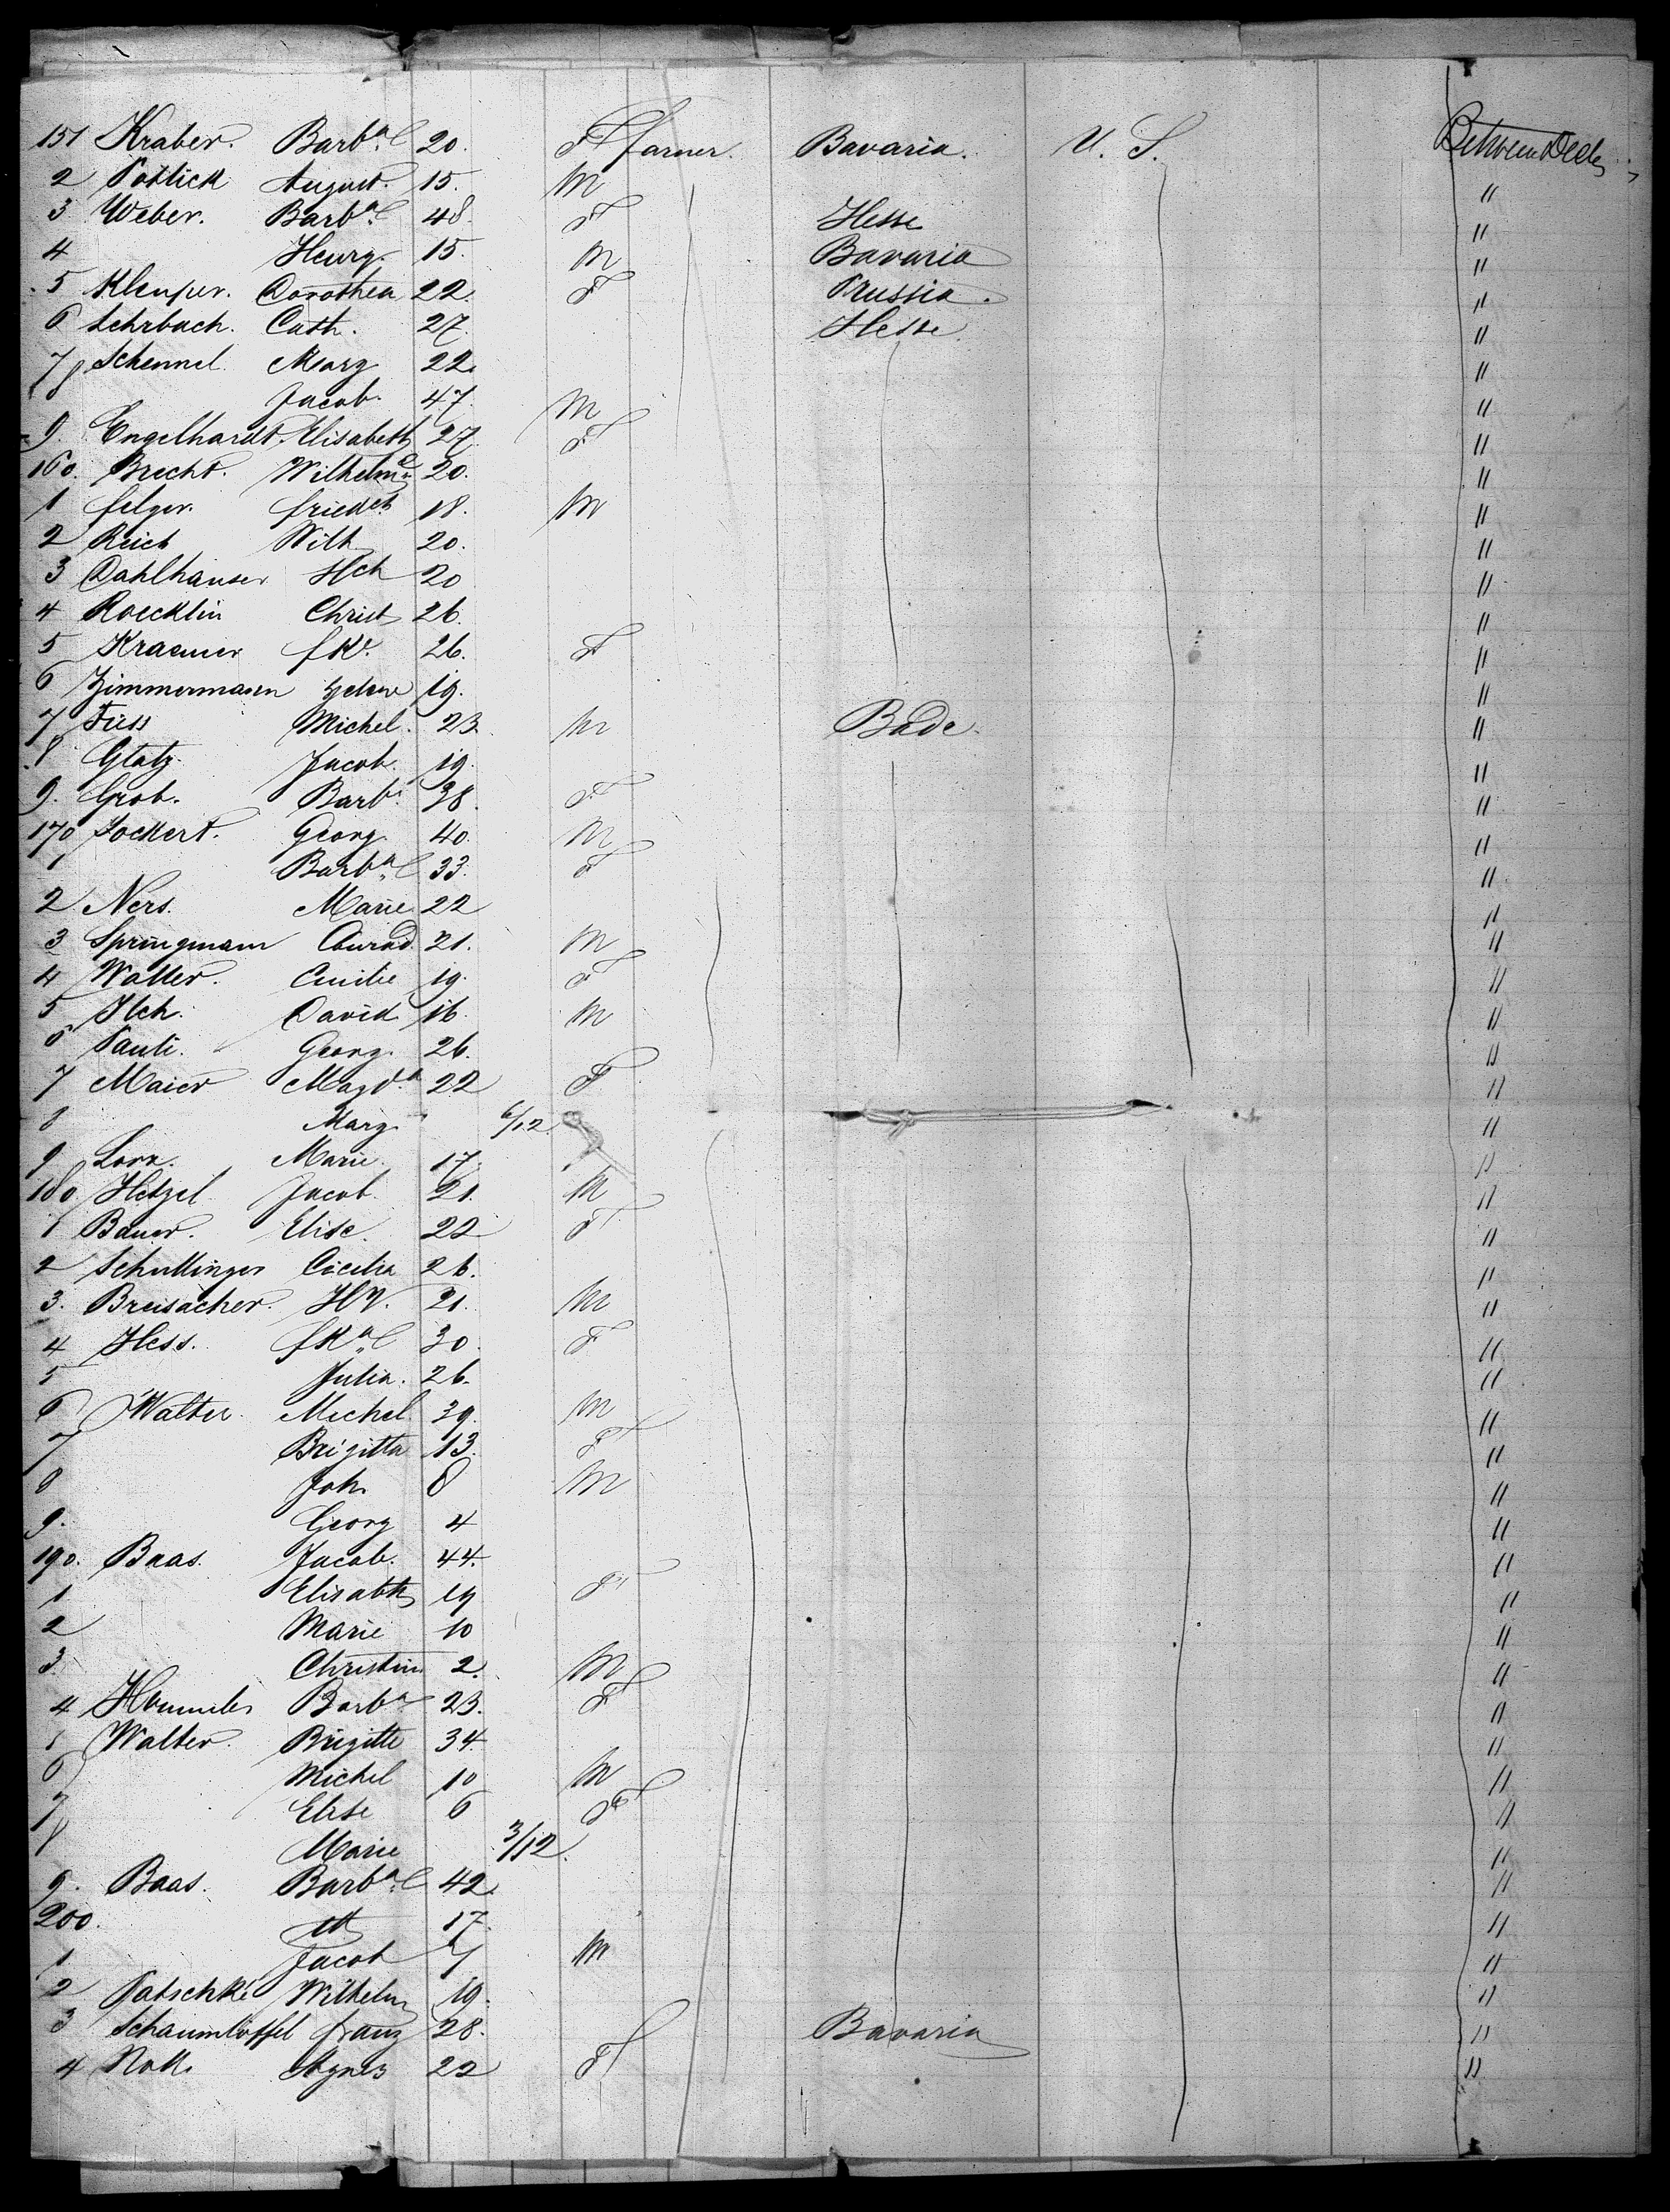 151 Kraber. Barb.a 20. F farmer. Bavaria. U. S. Between Decks
2 August. 15. M "
3 Weber. Barb.a 48 F Hesse "
4 Heurg. 15. M Bavaria "
5 Dorothea 22. F Prussia. "
6 Lehrbach. Cath. 27 Hesse "
7 Schemmel Marg 22. "
8 Jacob. 47. M "
9. Engelhardt. Elisabeth 27. F "
160. Brecht. 20. "
1 felger. 18. M "
2 Reich Wilh 20. "
3 Dahlhauser Hch 20 "
4 Roecklin Christ 26. "
5 Kraemer fkr. 26. F "
6 Zimmermann 19. "
7 Michel. 23 M Bade. "
8 Glatz. Jacob. 19. "
9. Grob. Barb.a 38. F "
170 Lockert. Georg 40. M "
1 Barb.a 33. F "
2 Ners. Marie 22 "
3 Springmann Conrad. 21. M "
4 Walter. Emilie 19. F "
5 Ilch. David 16 M "
6 Pauli. Georg. 26. "
7 Maier Magd.a 22 F "
8 Marg. 6/12. "
9 Marie 17. "
180 Hetzel Jacob. 21. M "
1 Bauer. Elise. 22 F "
2 Cäcilia 26. "
3. Breisacher. 21. M "
4 Hess. fka 30. F "
5 Julia. 26. "
6 Walter. Michel. 39. M "
7 Brigitta 13. F "
8 Joh. 8 M "
9. Georg 4 "
190. Baas. Jacob. 44. "
1 Elisabth 19 F "
2 Marie 10 "
3. Christin 2. M "
4 Barb.a 23. F "
5 Walter. Brigitte 34 "
6 Michel 10 M "
7 Elise 6 F "
8 Marie 3/12. "
9. Baas. Barb.a 42. "
200. 17. "
1 Jacob 7 M "
2 Patschke Wilhelm 19. "
3 Schaumlöffel franz 28. Bavaria "
4 Agnes 22 F "